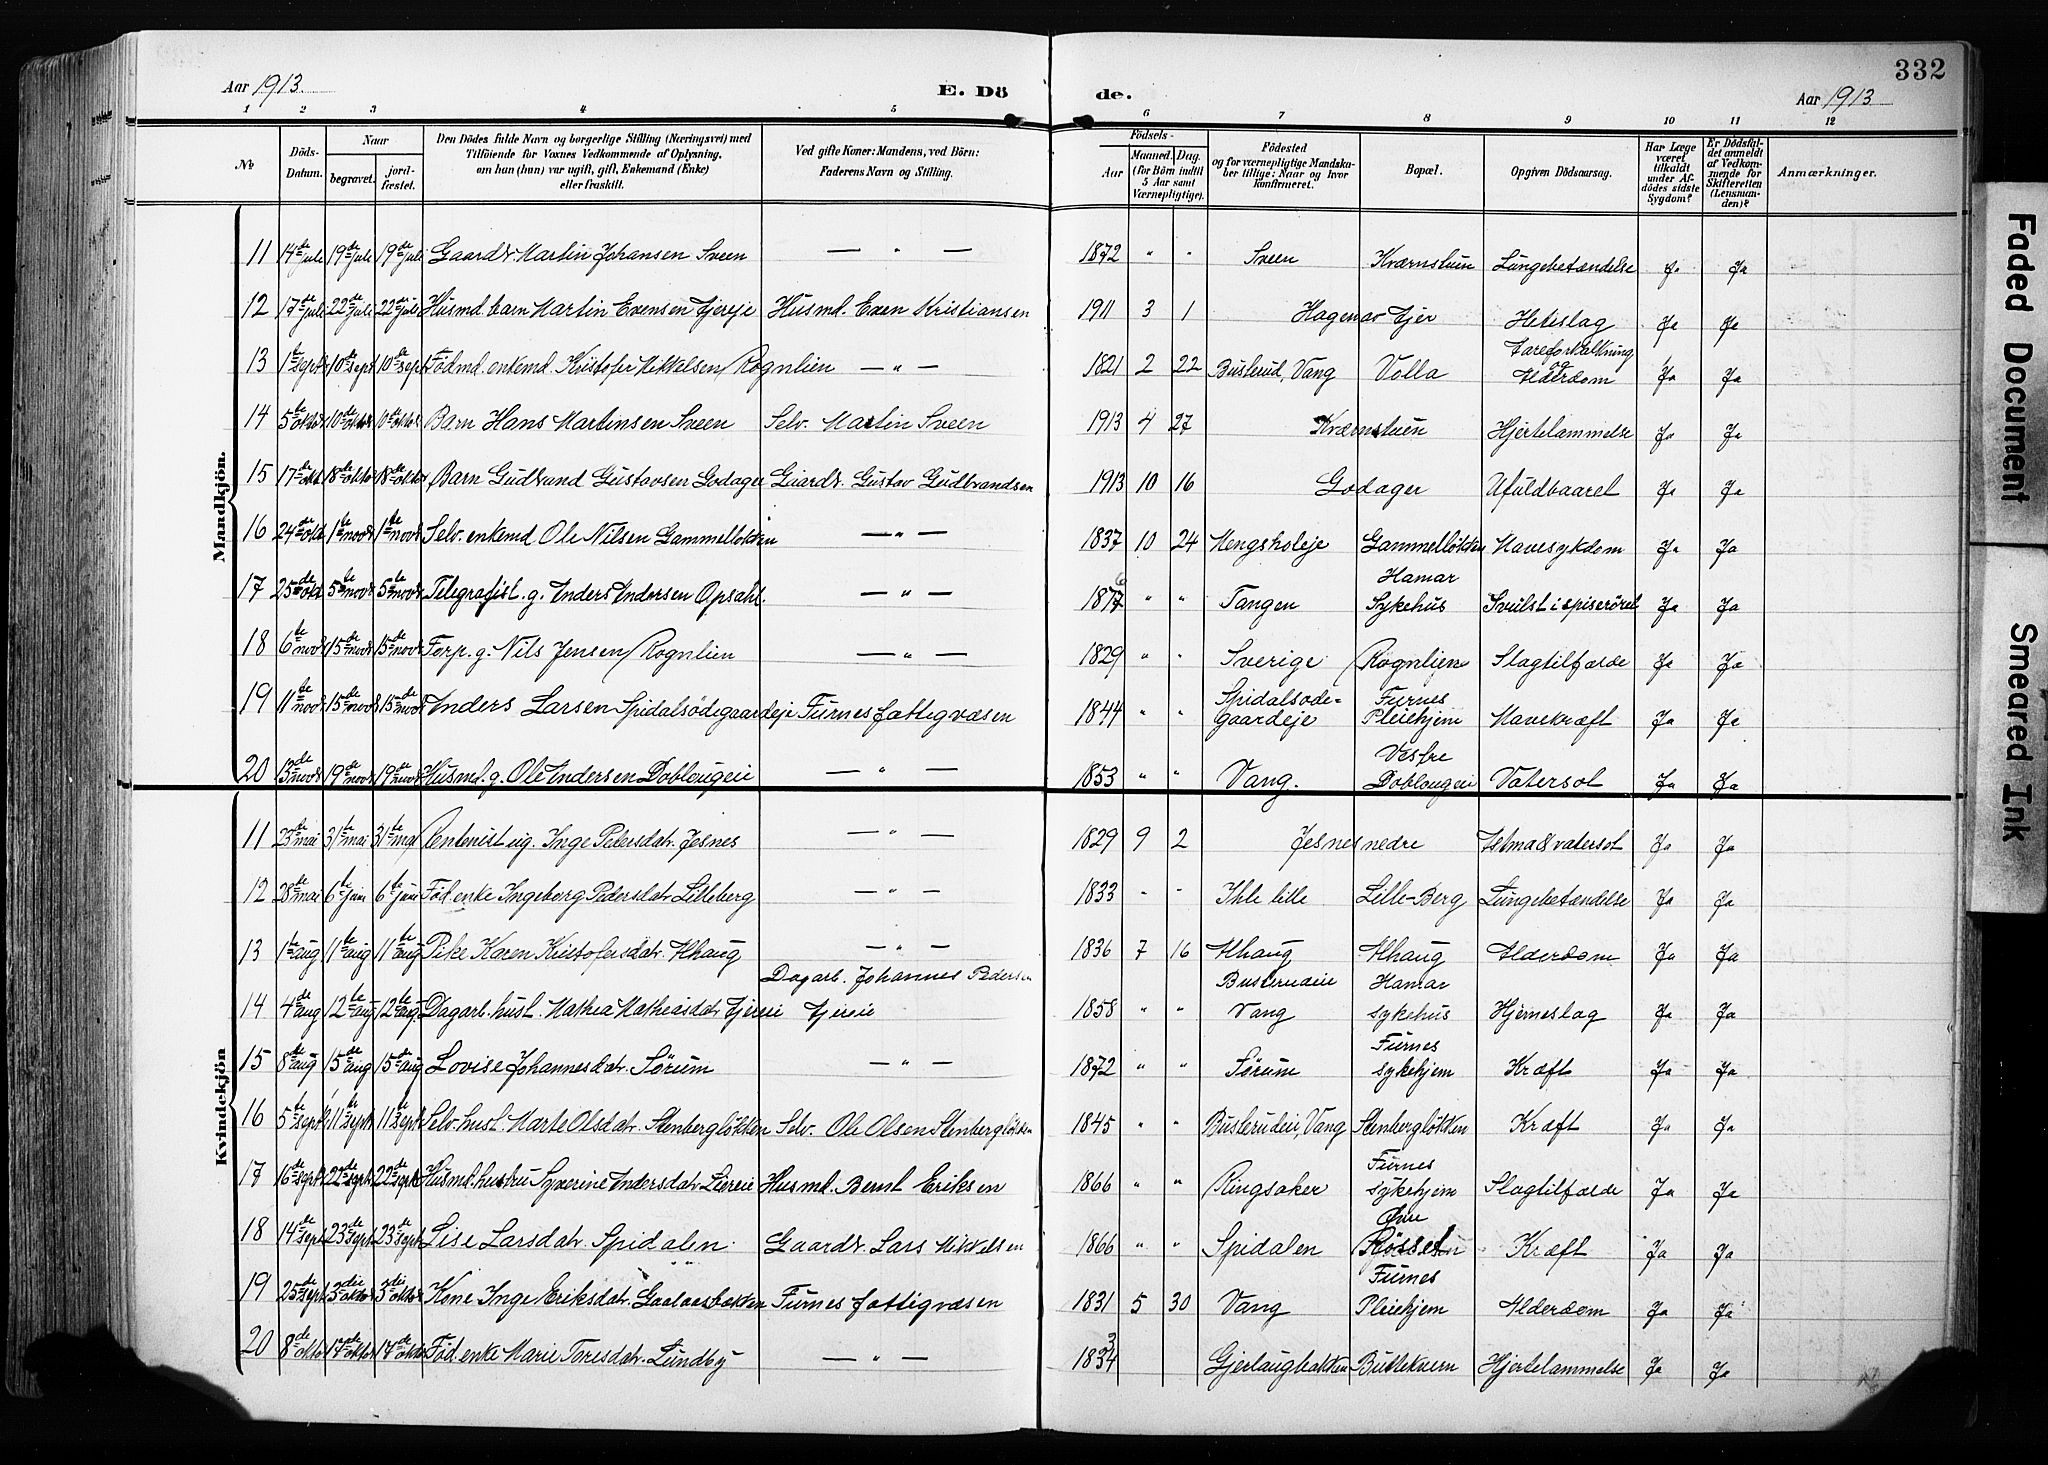 332
Aar 1913. E. Dö de. Aar 1913
1 2 3 4 5 6 7 8 9 10 11 12
No
Döds-Datum.
Naar
begravet.
jordfæstet.
Den Dödes fulde Navn og borgerlige Stilling (Næringsvei) med
Tilföiende for Voxnes Vedkommende af Oplysning,
om han (hun) var ugift, gift, Enkemand (Enke)
eller fraskilt.
Ved gifte Koner: Mandens, ved Börn:
Faderens Navn og Stilling.
Födsels-
Aar
Maaned. Dag.
(for Börn indtil
5 Aar samt
Værnepligtige).
Födested
og for værnepligtige Mandska-
ber tillige: Naar og hvor
konfirmeret.
Bopæl.
Opgiven Dödsaarsag.
Har Læge
været
tilkaldt
under Af-
dödes sidste
Sygdom?
Er Dödsfal-
det anmeldt
af Vedkom-
mende for
Skifteretten
(Lensman-
den)?
Anmærkninger.
Mandkjön.
11 14de juli 19de juli 19de juli Gaardbr. Martin Johansen Sveen — " — 1872 " " Sveen Kværnstuen Lungebetændelse Ja Ja
12 17de juli 22de juli 22de juli Husmd. barn Martin Evensen Ejereje Husmd. Even Kristiansen 1911 3 1 Hagenæs Ejer Heteslag Ja Ja
13 1te sept 10de sept 10de sept Fødmd. enkemd. Kristofer Mikkelsen Rognlien — " — 1821 2 22 Buslerud, Vang Volla Aareforkalkning og Alderdom Ja Ja
14 5te oktbr 10de oktbr 10de oktbr Barn Hans Martinsen Sveen Selv. Martin Sveen 1913 4 27 Kværnstuen Hjertelammelse Ja Ja
15 17de okt. 18de oktbr 18de oktbr Barn Gudbrand Gustavsen Godager Gaardbr. Gustav Gudbrandsen 1913 10 16 Godager Ufuldbaaret Ja Ja
16 24de okt 1te novbr 1te novbr Selv. enkemd Ole Nilsen Gammelløkken — " — 1837 10 24 Mengsholeje Gammelløkken Mavesykdom Ja Ja
17 25de okt 5te novbr 5te novbr Telegrafist. g. Anders Andersen Opsahl. — " — 1877 " " Tangen Hamar Sykehus Svulst i spiserøret Ja Ja
18 6te novbr 15de novbr 15de novbr Forp. g. Nils Jensen Rognlien — " — 1829 " " Sverige Rognlien Slagtilfælde Ja Ja
19 11te novbr 15de novbr 15de novbr Anders Larsen Spidalsødegaardeje Furnes fattigvæsen 1844 " " Spidalsøde-gaardeje Furnes Pleiehjem Mavekræft Ja Ja
20 13de novbr 19de novbr 19de novbr Husmd. g. Ole Andersen Doblougeie — " — 1853 " " Vang. Vestre Doblougeie Vatersot Ja Ja
Kvindekjön
11 23de mai 31te mai 31te mai Rentenist ug. Inge Pedersdatr. Jesnes — " — 1829 9 2 Jesnes nedre Astma & vatersot Ja Ja
12 28de mai 6te juni 6te juni Fød. enke Ingeborg Pedersdatr Lilleberg — " — 1833 " " Ihle lille Lille-Berg Lungebetændelse Ja Ja
13 1te aug 11te aug 11te aug Pike Karen Kristofersdatr. Alhaug — " — 1836 7 16 Alhaug Alhaug Alderdom Ja Ja
14 4de aug 12te aug 12te aug. Dagarb. hust. Mathea Mathiasdatr Ejereie Dagarb. Johannes Pedersen Ejereie 1858 " " Busterudeie Vang Hamar sykehus Hjerneslag Ja Ja
15 8de aug 15de aug 15de aug Lovise Johannesdatr. Sørum — " — 1872 " " Sørum Furnes sykehjem Kræft Ja Ja
16 5te sept 11te sept 11te sept Selv. hust. Marte Olsdatr. Stenbergløkken Selv. Ole Olsen Stenbergløkken 1845 " " Busterudeie, Vang Stenbergløkken Kræft Ja Ja
17 16de sept 22de sept 22de sept Husmd. hustru Syverine Andersdatr Liereie Husmd. Bernt Eriksen 1866 " " Ringsaker Furnes sykehjem Slagtilfælde Ja Ja
18 14de sept 23de sept 23de sept Lise Larsdatr. Spidalen. Gaardbr. Lars Mikkelsen 1866 " " Spidalen Øvre Røsset Kræft Ja Ja
19 25de sept 3die oktbr 3die oktbr Kone Inge Eriksdatr. Gaalaasbakken Furnes fattigvæsen 1831 5 30 Vang Furnes Pleiehjem Alderdom Ja Ja
20 8de oktbr 14de oktbr 14de oktbr Fød. enke Marie Toresdatr. Lundby — " — 1834 Gjerlaugbakken Buttekvern Hjertelammelse Ja Ja
Faded Document
Smeared Ink